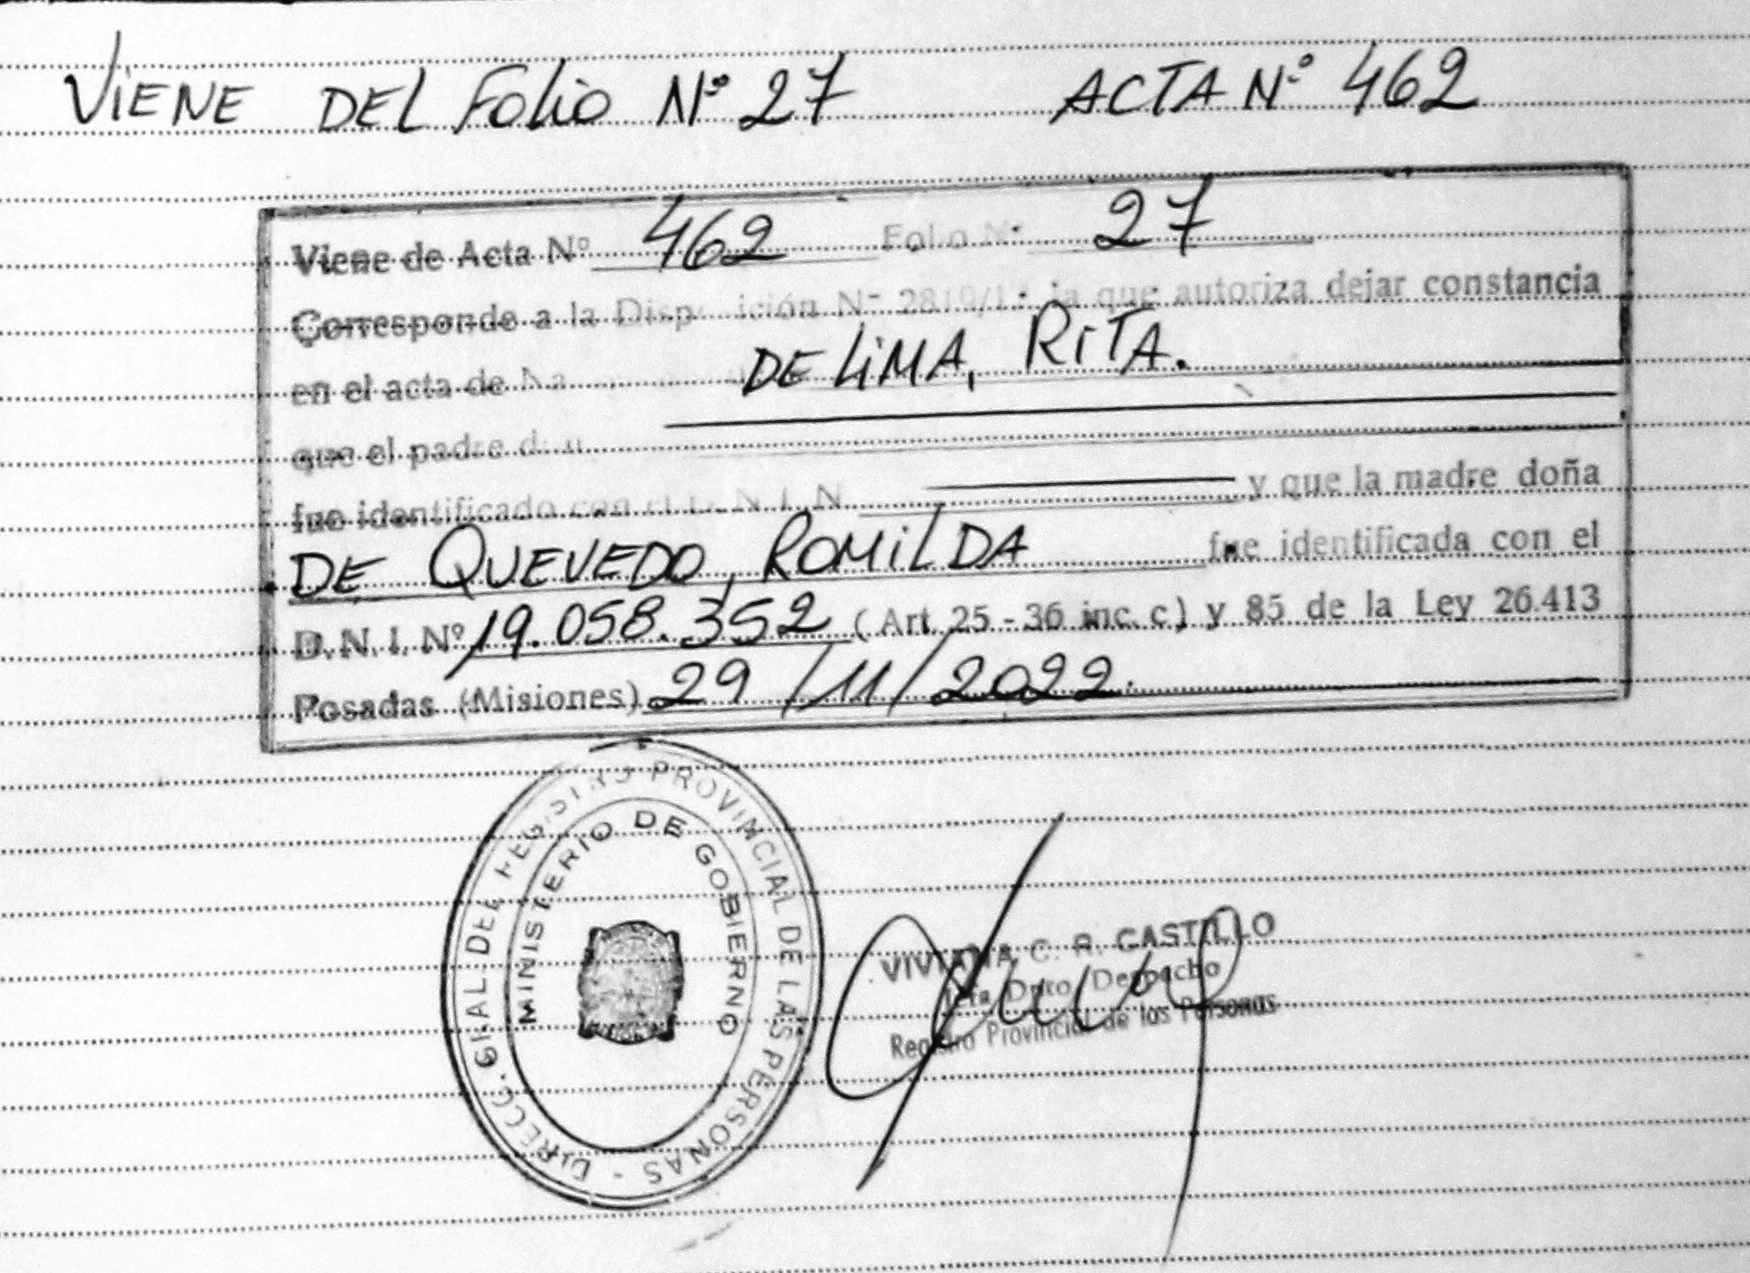 VIENE DEL FOLIO Nº 27 ACTA Nº 462
Viene de Acta Nº 462 Folio Nº 27
Corresponde a la Disposición Nº la que autoriza dejar constancia
en el acta de DE LIMA, RITA.
que el padre
fue identificado con el D.N.I. N y que la madre doña
DE QUEVEDO, ROMILDA fue identificada con el
D.N.I. Nº 19.058.352 (Art. 25 - 36 inc. c) y 85 de la Ley 26.413
Posadas (Misiones) 29/11/2022.
DIRECC. GRAL DEL REGISTRO PROVINCIAL DE LAS PERSONAS -
MINISTERIO DE GOBIERNO
VIVIANA C. R. CASTILLO
Jefa Dpto Despacho
Registro Provincial de las Personas